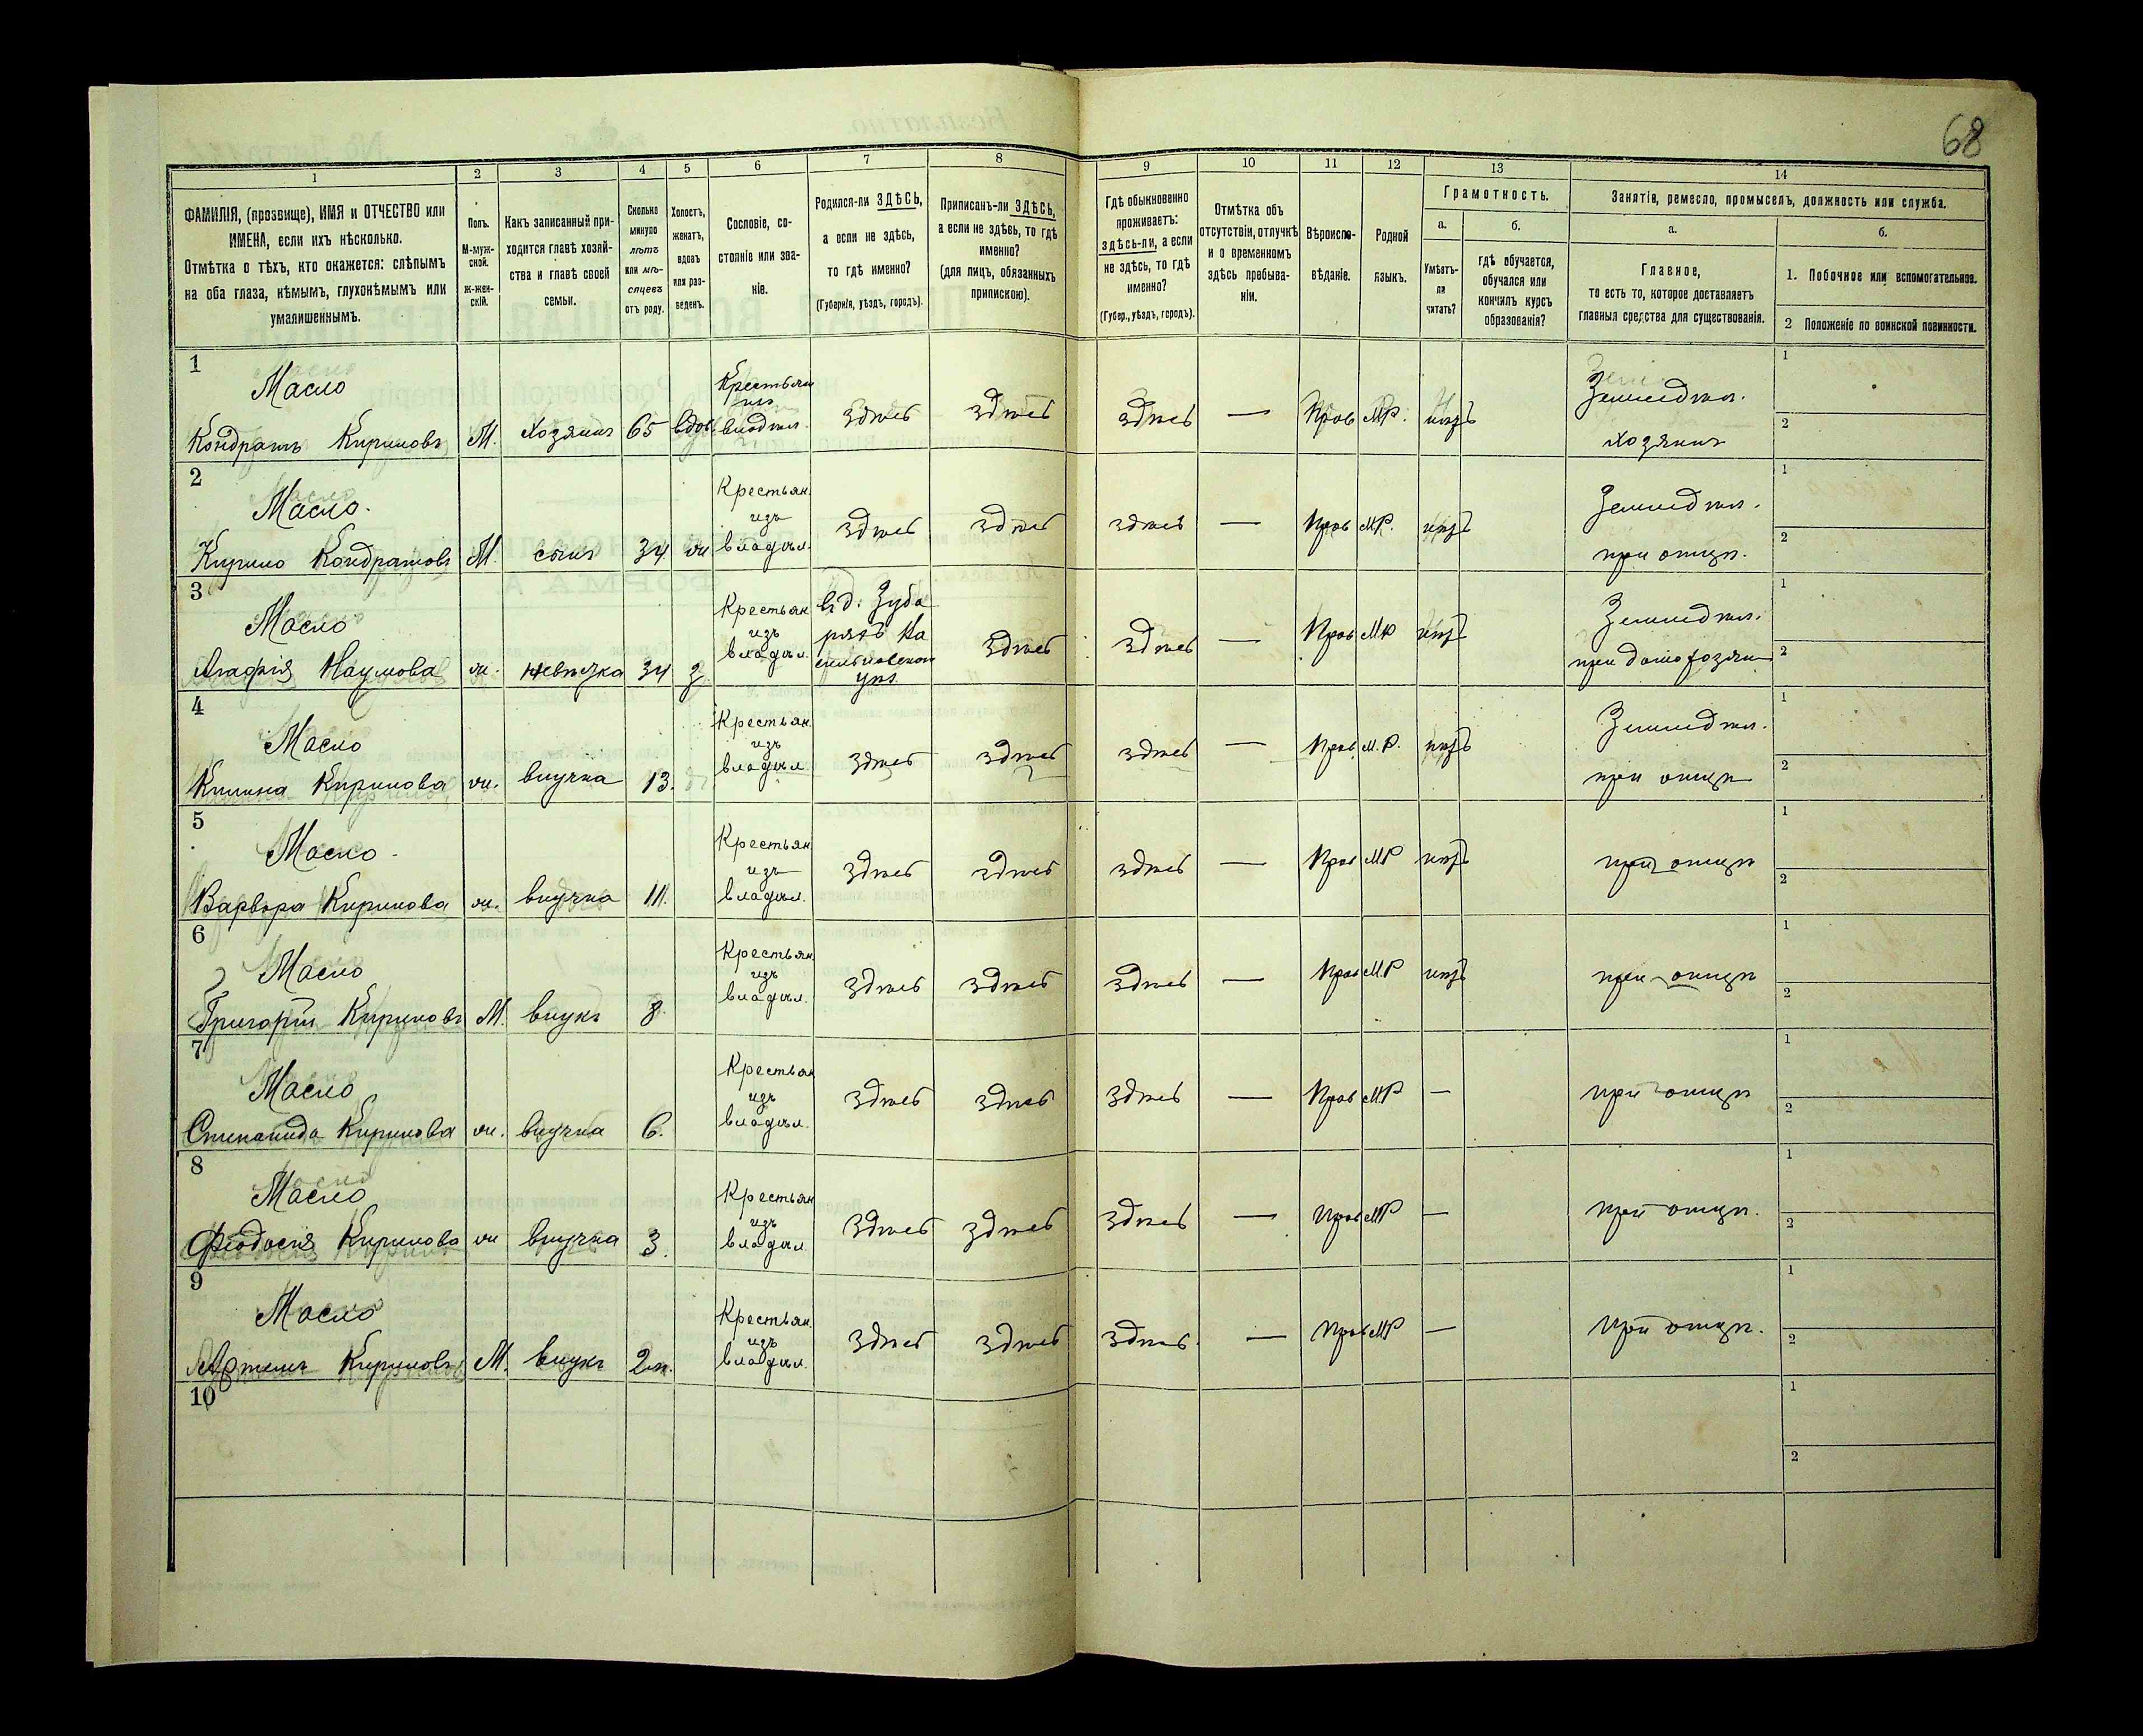 68
1 2 3 4 5 6 7 8 9 10 11 12 13 14
ФАМИЛІЯ, (прозвище), ИМЯ и ОТЧЕСТВО или
ИМЕНА, если ихъ нѣсколько.
Отмѣтка о тѣхъ, кто окажется: слѣпымъ
на оба глаза, нѣмымъ, глухонѣмымъ или
умалишеннымъ.
Полъ.
М-муж-
ской.
Ж-жен-
скій.
Какъ записанный при-
ходится главѣ хозяй-
ства и главѣ своей
семьи.
Сколько
минуло
лѣтъ
или мѣ-
сяцевъ
отъ роду.
Холостъ,
женатъ,
вдовъ
или раз-
веденъ.
Сословіе, со-
стояніе или зва-
ніе.
Родился-ли ЗДѢСЬ,
а если не здѣсь,
то гдѣ именно?
(Губернія, уѣздъ, городъ).
Приписанъ-ли ЗДѢСЬ,
а если не здѣсь, то гдѣ
именно?
(для лицъ, обязанныхъ
припискою).
Гдѣ обыкновенно
проживаетъ:
здѣсь-ли, а если
не здѣсь, то гдѣ
именно?
(Губер., уѣздъ, городъ).
Отмѣтка объ
отсутствіи, отлучкѣ
и о временномъ
здѣсь пребыва-
ніи.
Вѣроиспо-
вѣданіе.
Родной
языкъ.
Грамотность.
а.
Умѣетъ-
ли
читать?
б.
гдѣ обучается,
обучался или
кончилъ курсъ
образованія?
Занятіе, ремесло, промыселъ, должность или служба.
а.
Главное,
то есть то, которое доставляетъ
главныя средства для существованія.
б.
1. Побочное или вспомогательное.
2 Положеніе по воинской повинности.
1
Масло
Кондратъ Кириловъ М. Хозяинъ 65 вдов здѣсь здѣсь здѣсь — Прав М.Р. нѣтъ
Земледѣл.
хозяинъ
1
2
2
Масло.
Кирило Кондратовъ М. сынъ 34 ж
Крестьян.
изъ
владѣл.
здѣсь здѣсь здѣсь — Прав М.Р. нѣтъ
Земледѣл.
при отцѣ.
1
2
3
Масло
Агафія Наумова ж. невѣстка 34 з
Крестьян
изъ
владѣл.
здѣсь здѣсь — Прав МР нѣтъ
Земледѣл.
1
2
4
Масло
Килина Кирилова ж. внучка 13.
Крестьян.
изъ
владѣл.
здѣсь здѣсь здѣсь — Прав М.Р. нѣтъ
Земледѣл.
при отцѣ
1
2
5
Масло
Варвара Кирилова ж. внучка 11.
Крестьян.
изъ
владѣл.
здѣсь здѣсь здѣсь — Прав МР нѣтъ
при отцѣ
1
2
6
Масло
Григорій Кириловъ М. внукъ 8.
Крестьян.
изъ
владѣл.
здѣсь здѣсь здѣсь — Прав М.Р нѣтъ
при отцѣ
1
2
7
Масло
Степанида Кирилова ж. внучка 6.
Крестьян
изъ
владѣл.
здѣсь здѣсь здѣсь — Прав МР —
при отцѣ
1
2
8
Масло
Феодосія Кирилова ж внучка 3.
Крестьян
изъ
владѣл.
здѣсь здѣсь здѣсь — Прав МР —
при отцѣ.
1
2
9
Масло
Артемъ Кириловъ М. внукъ 2м.
Крестьян.
изъ
владѣл.
здѣсь здѣсь здѣсь — Прав МР —
при отцѣ.
1
2
10
1
2